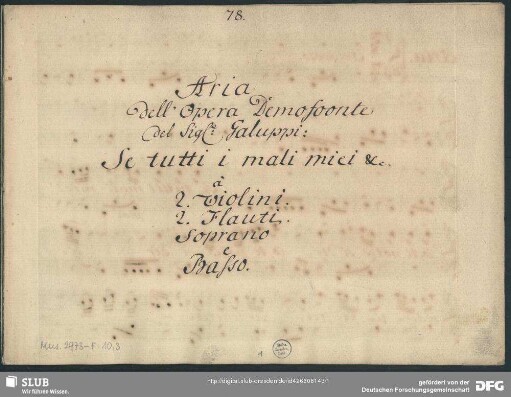 78.
Aria
dell' Opera Demofoonte
del Sigr: Galuppi:
Se tutti i mali miei &c.
à
2. Violini.
2. Flauti.
Soprano
e
Basso.
Mus. 2973-F-10,3
1
SLUB
Wir führen Wissen.
gefördert von der
Deutschen Forschungsgemeinschaft
DFG